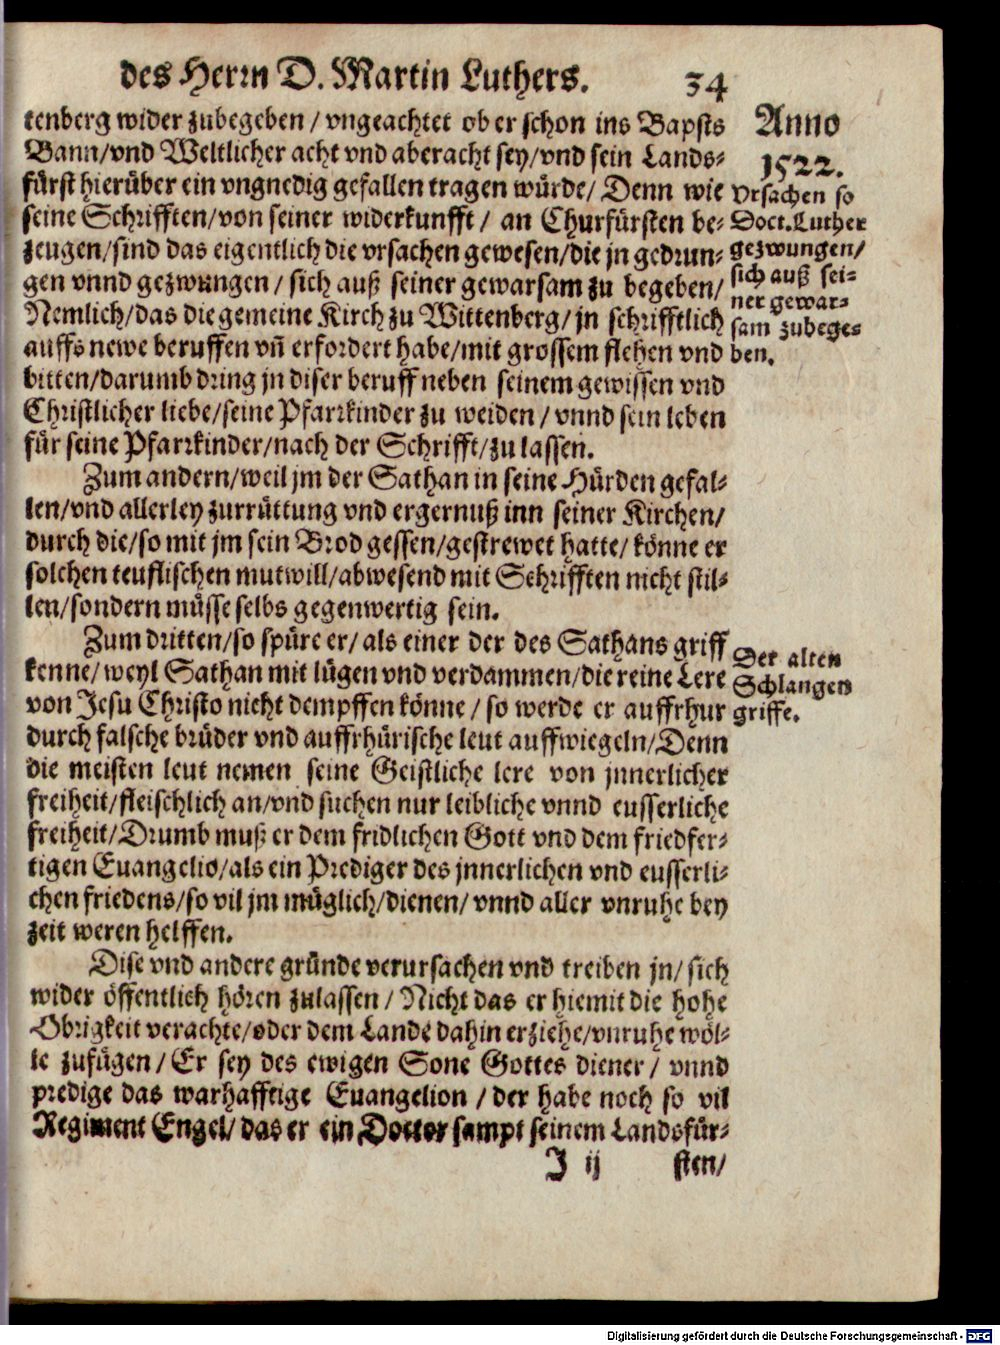 des Herrn D. Martin Luthers. 34
tenberg wider zubegeben / vngeachtet ob er schon ins Bapsts
Bann/vnd Weltlicher acht vnd aberacht sey/vnd sein Lands-
fürst hierüber ein vngnedig gefallen tragen würde/ Denn wie
seine Schrifften/von seiner widerkunfft / an Churfürsten be-
zeugen/sind das eigentlich die vrsachen gewesen/die jn gedrun-
gen vnnd gezwungen / sich auß seiner gewarsam zu begeben/
Nemlich/das die gemeine Kirch zu Wittenberg/ jn schrifftlich
auffs newe beruffen vñ erfordert habe/mit grossem flehen vnd
bitten/darumb dring jn diser beruff neben seinem gewissen vnd
Christlicher liebe/seine Pfarrkinder zu weiden / vnnd sein leben
für seine Pfarrkinder/nach der Schrifft/zu lassen.
Zum andern/weil jm der Sathan in seine Hürden gefal-
len/vnd allerley zurrüttung vnd ergernuß inn seiner Kirchen/
durch die/so mit jm sein Brod gessen/gestrewet hatte/ könne er
solchen teuflischen mutwill/abwesend mit Schrifften nicht stil-
len/sondern müsse selbs gegenwertig sein.
Zum dritten/so spüre er/ als einer der des Sathans griff
kenne/ weyl Sathan mit lügen vnd verdammen/die reine Lere
von Jesu Christo nicht dempffen könne / so werde er auffrhur
durch falsche brüder vnd auffrhürische leut auffwiegeln/Denn
die meisten leut nemen seine Geistliche lere von jnnerlicher
freiheit/fleischlich an/vnd suchen nur leibliche vnnd eusserliche
freiheit/Drumb muß er dem fridlichen Gott vnd dem friedfer-
tigen Euangelio/als ein Prediger des jnnerlichen vnd eusserli-
chen friedens/so vil jm müglich/dienen/ vnnd aller vnruhe bey
zeit weren helffen.
Dise vnd andere gründe verursachen vnd treiben jn/ sich
wider öffentlich hören zulassen / Nicht das er hiemit die hohe
Obrigkeit verachte/oder dem Lande dahin erziehe/vnruhe wöl-
le zufügen / Er sey des ewigen Sone Gottes diener / vnnd
predige das warhafftige Euangelion / der habe noch so vil
Regiment Engel/ das er ein Doctor sampt seinem Landsfür-
J ij sten/
Anno
1522.
Vrsachen so
Doct. Luther
gezwungen/
sich auß sei-
ner gewar-
sam zubege-
ben.
Der alten
Schlangen
griffe.
Digitalisierung gefördert durch die Deutsche Forschungsgemeinschaft - DFG